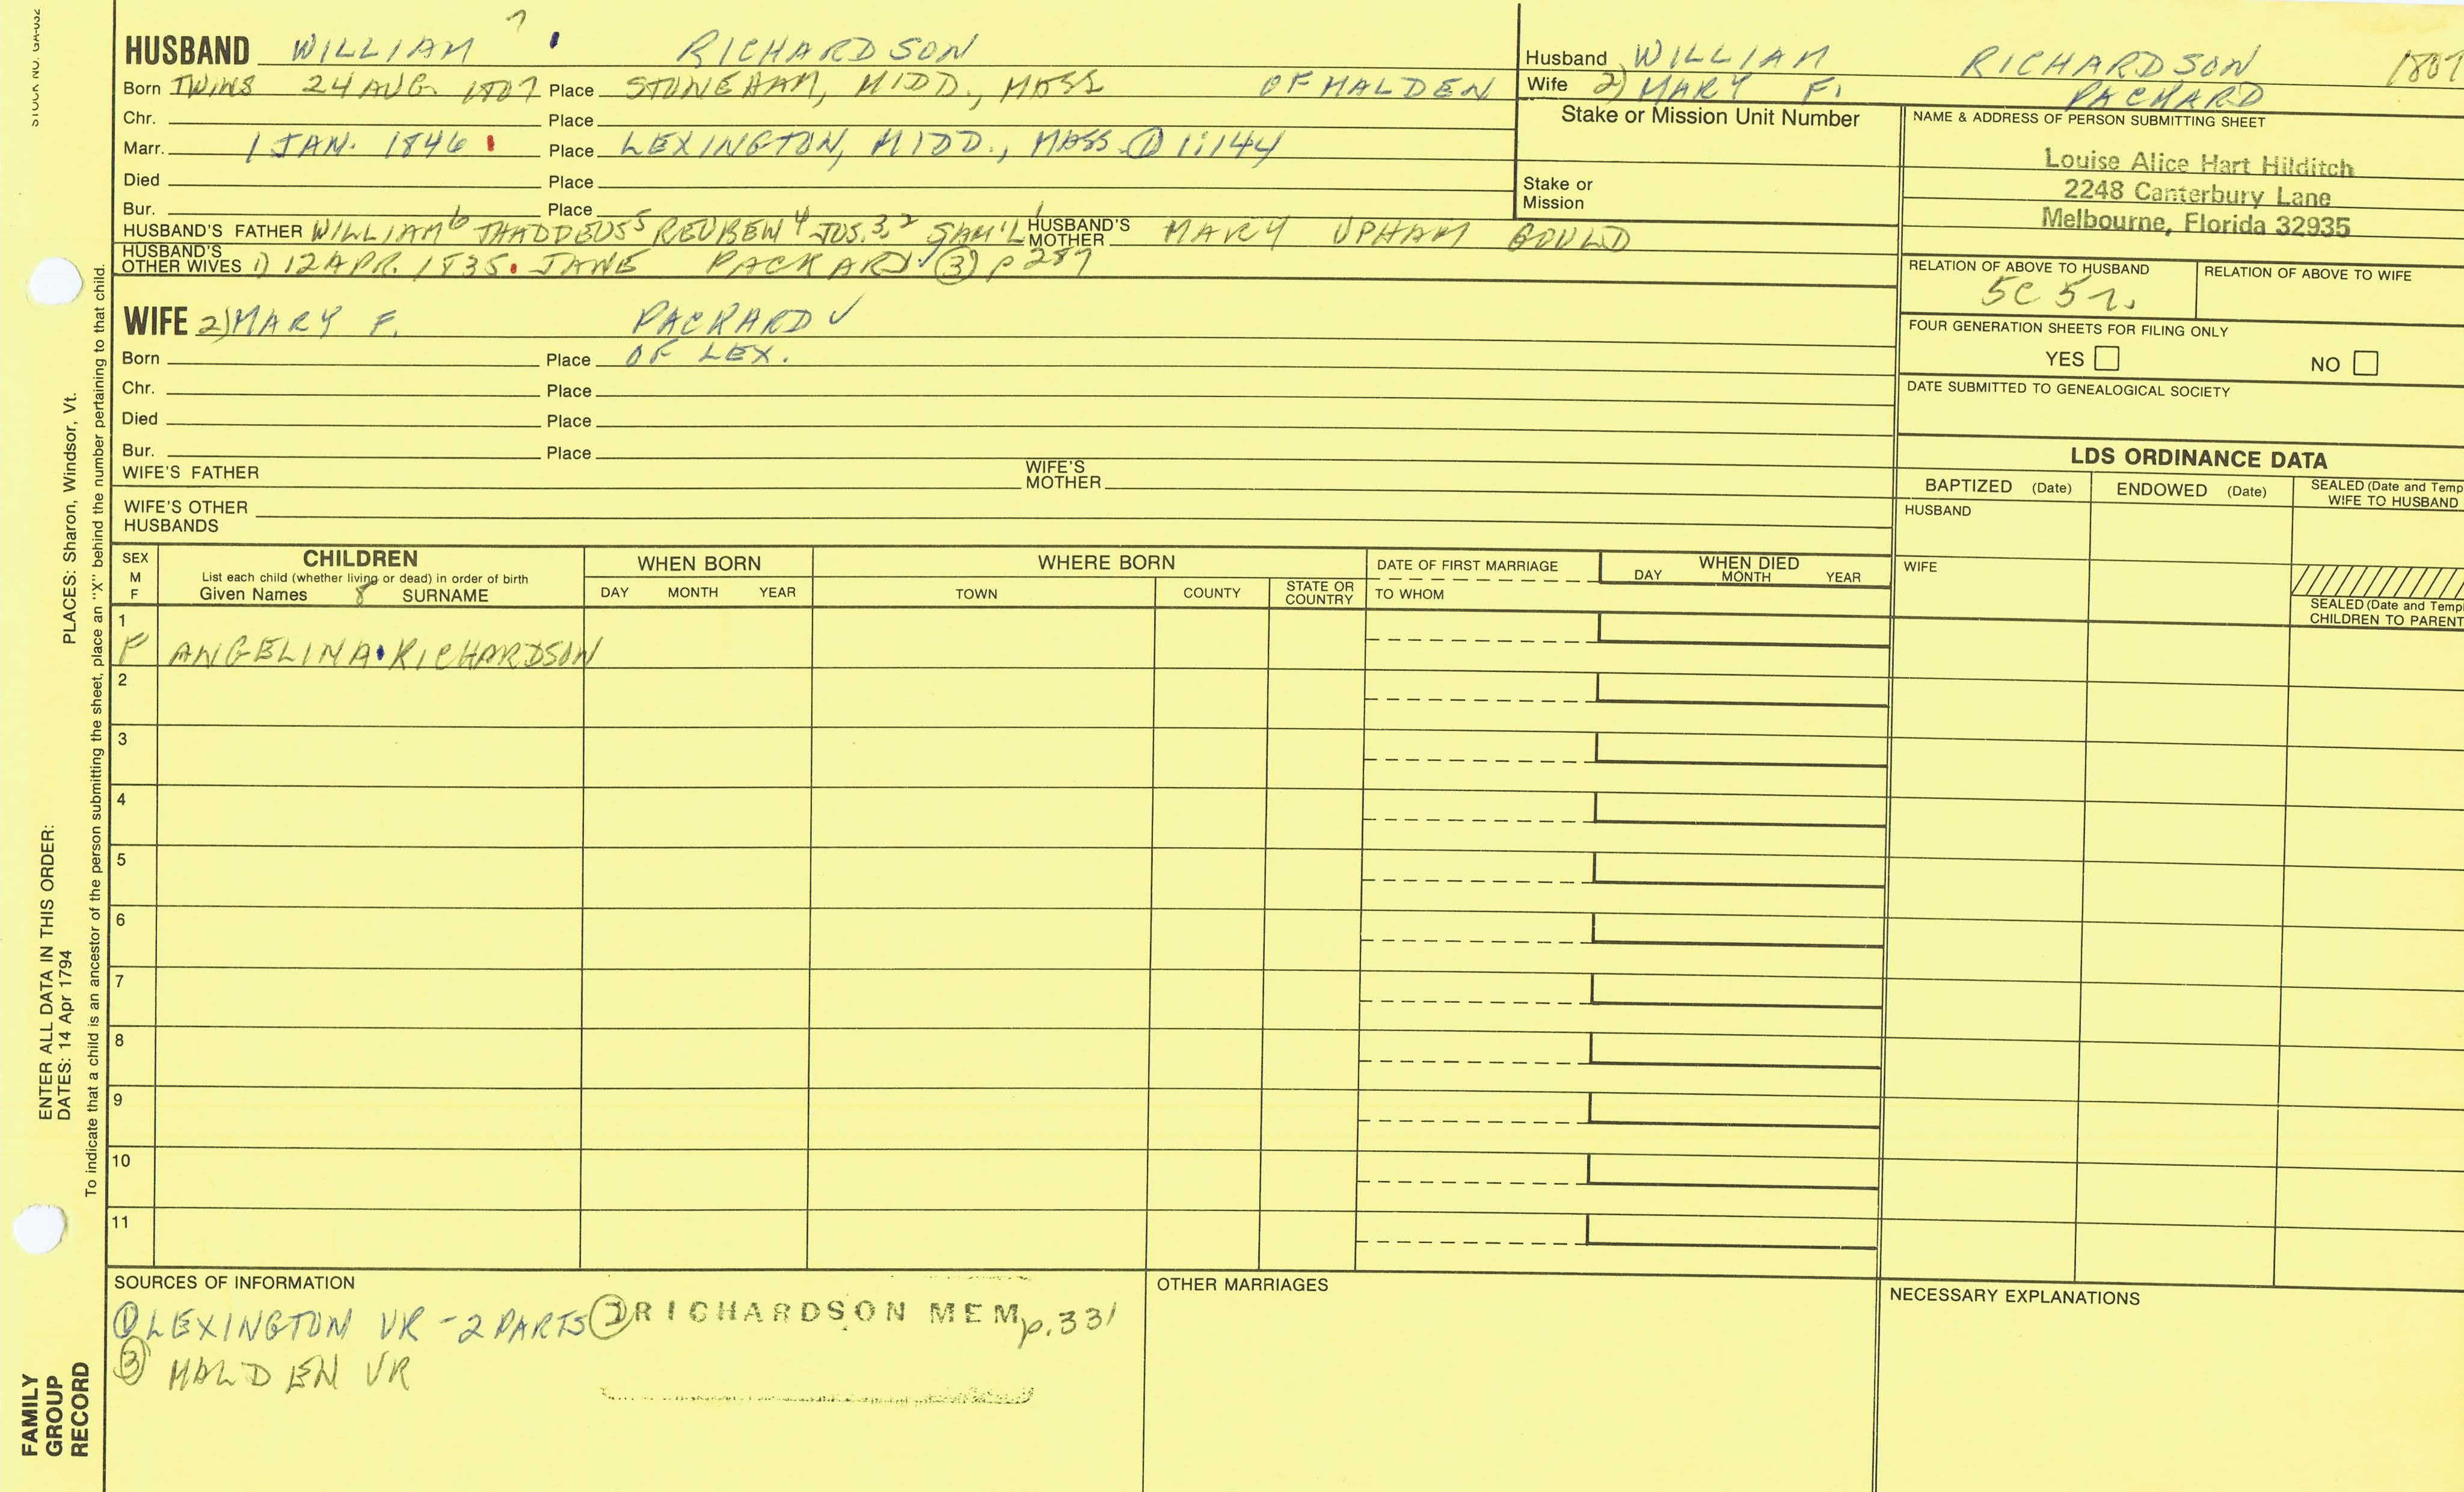 STOCK NO. GA-032
7
HUSBAND WILLIAM RICHARDSON
Born TWINS 24 AUG. 1807 Place STONEHAM, MIDD., MASS OF MALDEN
Chr. Place
Marr. 1 JAN. 1846 Place LEXINGTON, MIDD., MASS ① 1:144
Died Place
Bur. Place
HUSBAND'S FATHER WILLIAM⁶ THADDEUS⁵ REUBEN⁴ JOS.³,² SAM'L¹ HUSBAND'S MOTHER MARY UPHAM GOULD
HUSBAND'S OTHER WIVES 1) 12 APR. 1835 JANE PACKARD ✓ ③ p 287
Husband WILLIAM RICHARDSON 1807
Wife 2) MARY F. PACKARD
Stake or Mission Unit Number
Stake or Mission
NAME & ADDRESS OF PERSON SUBMITTING SHEET
Louise Alice Hart Hilditch
2248 Canterbury Lane
Melbourne, Florida 32935
RELATION OF ABOVE TO HUSBAND RELATION OF ABOVE TO WIFE
5C 5r.
FOUR GENERATION SHEETS FOR FILING ONLY
YES NO
DATE SUBMITTED TO GENEALOGICAL SOCIETY
WIFE 2) MARY F. PACKARD ✓
Born Place OF LEX.
Chr. Place
Died Place
Bur. Place
WIFE'S FATHER WIFE'S MOTHER
WIFE'S OTHER HUSBANDS
LDS ORDINANCE DATA
BAPTIZED (Date) ENDOWED (Date) SEALED (Date and Temp
WIFE TO HUSBAND
HUSBAND
WIFE
SEALED (Date and Temp
CHILDREN TO PARENT
SEX M F
CHILDREN
List each child (whether living or dead) in order of birth
Given Names 8 SURNAME
WHEN BORN
DAY MONTH YEAR
WHERE BORN
TOWN COUNTY STATE OR COUNTRY
DATE OF FIRST MARRIAGE
TO WHOM
WHEN DIED
DAY MONTH YEAR
1
F ANGELINA RICHARDSON
2
3
4
5
6
7
8
9
10
11
SOURCES OF INFORMATION
① LEXINGTON VR - 2 PARTS ② RICHARDSON MEM p. 331
③ MALDEN VR
OTHER MARRIAGES
NECESSARY EXPLANATIONS
PLACES: Sharon, Windsor, Vt.
ENTER ALL DATA IN THIS ORDER:
DATES: 14 Apr 1794
To indicate that a child is an ancestor of the person submitting the sheet, place an "X" behind the number pertaining to that child.
FAMILY
GROUP
RECORD